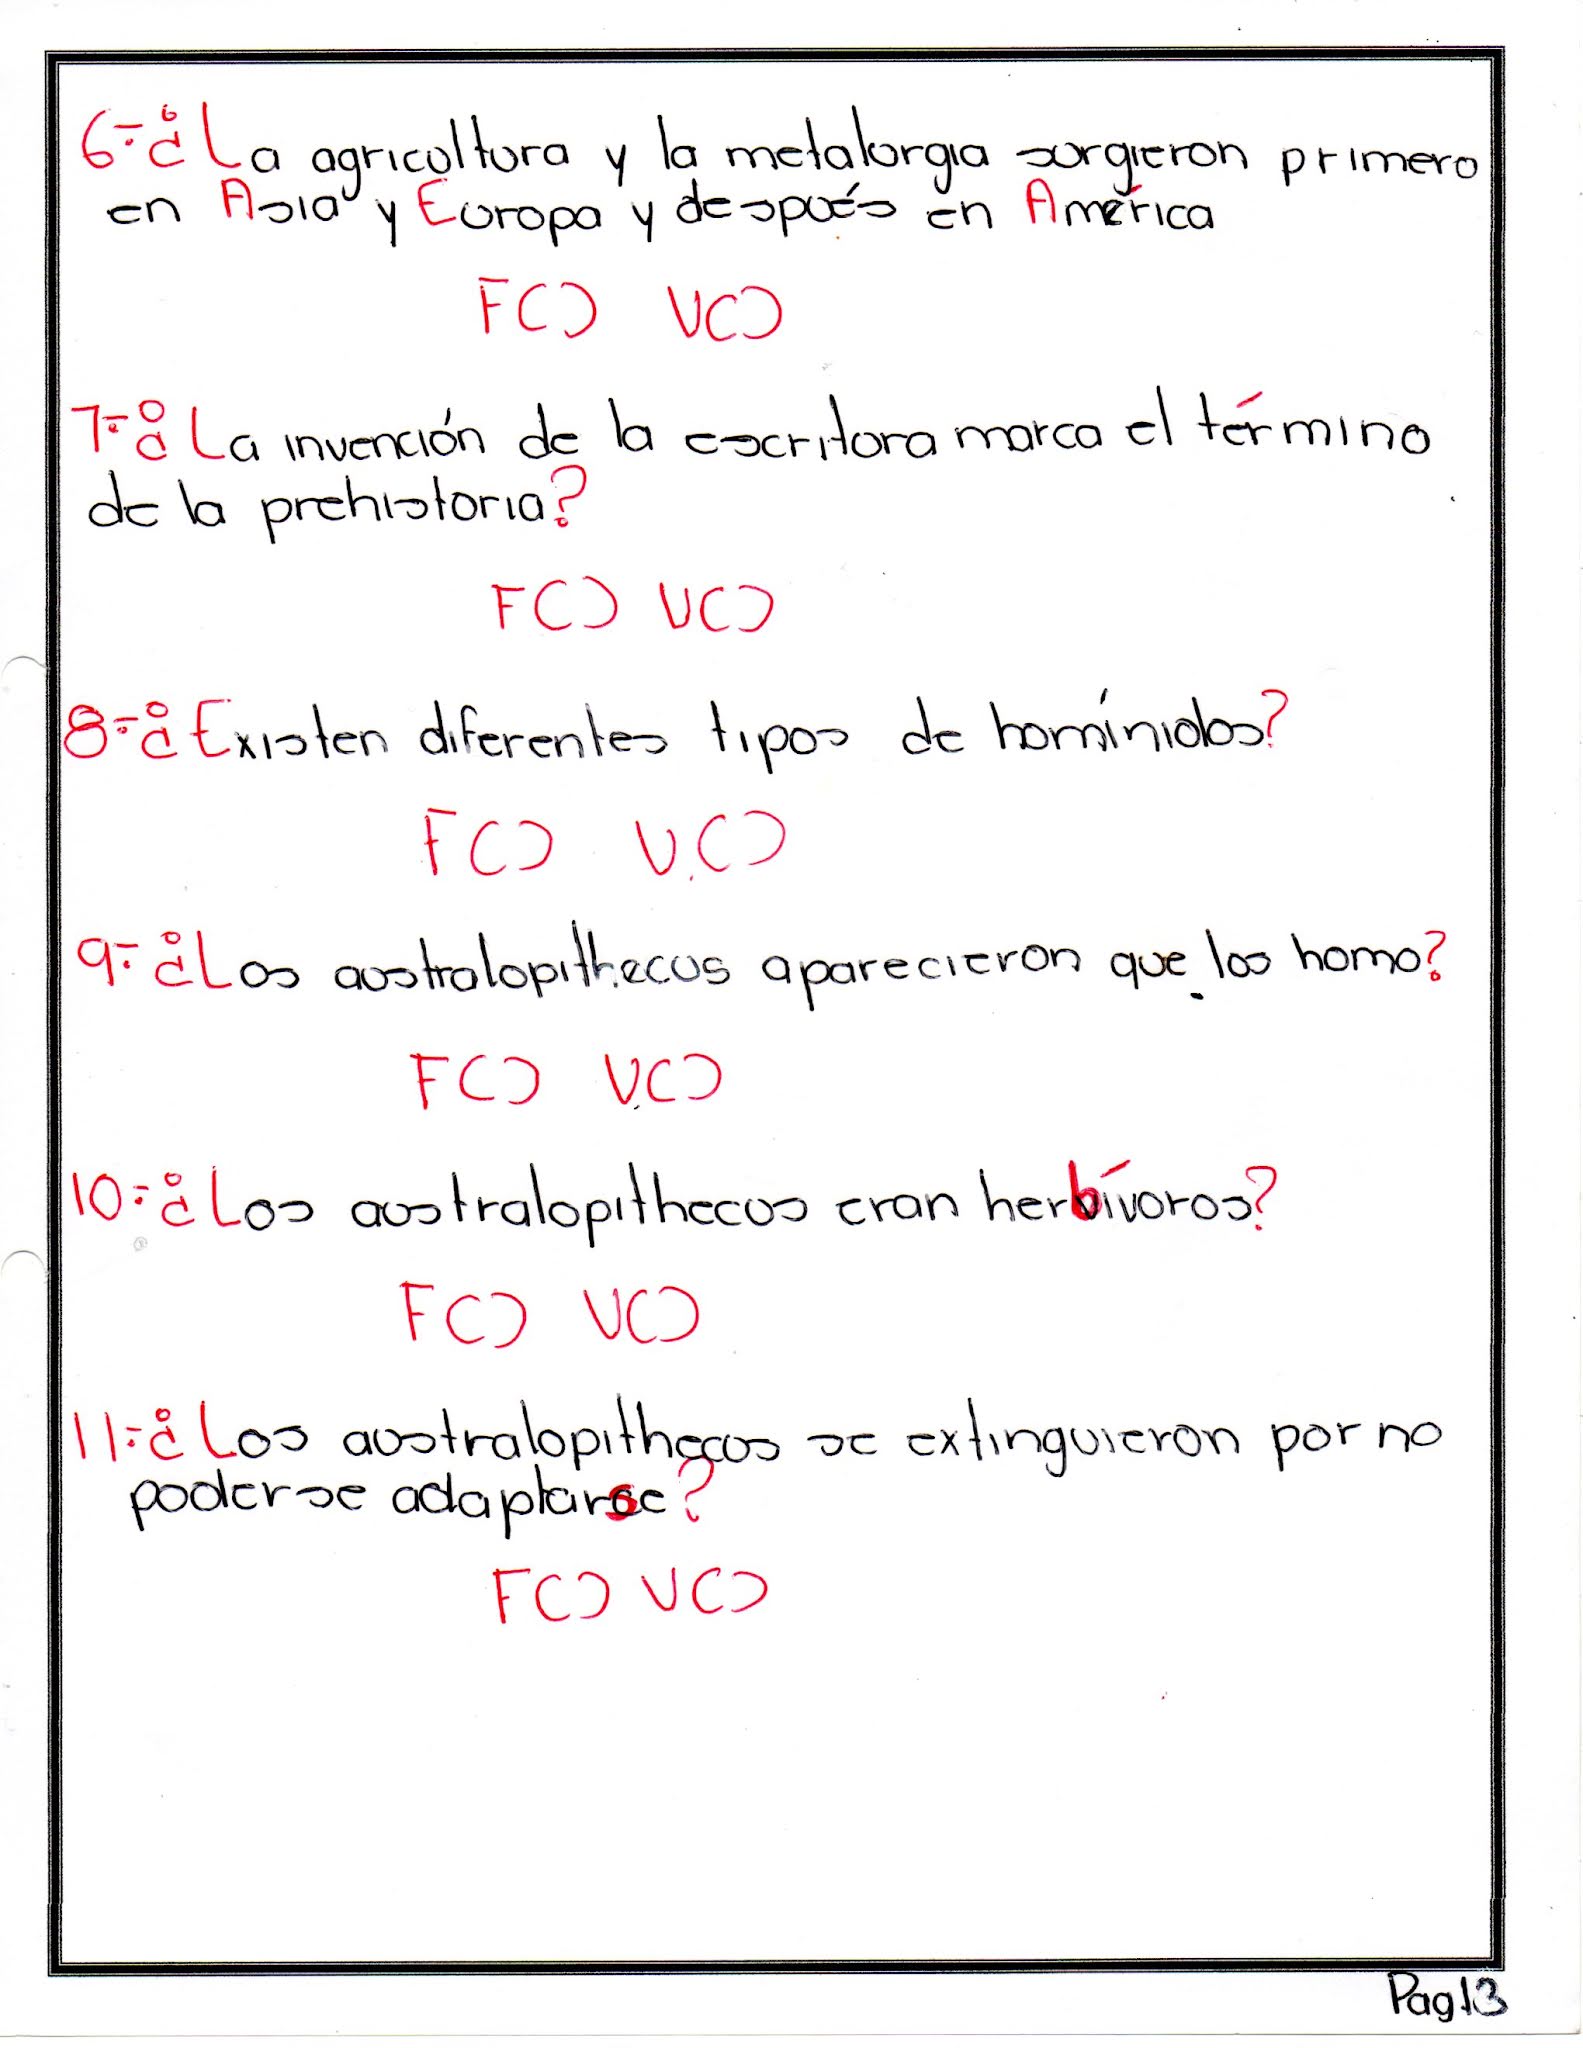 6-¿La agricultura y la metalurgia surgieron primero
en Asia y Europa y después en América
F( ) V( )
7-¿La invención de la escritura marca el término
de la prehistoria?
F( ) V( )
8-¿Existen diferentes tipos de homínidos?
F( ) V( )
9-¿Los australopithecus aparecieron que los homo?
F( ) V( )
10-¿Los australopithecus eran herbívoros?
F( ) V( )
11-¿Los australopithecus se extinguieron por no
poderse adaptarse?
F( ) V( )
Pag13